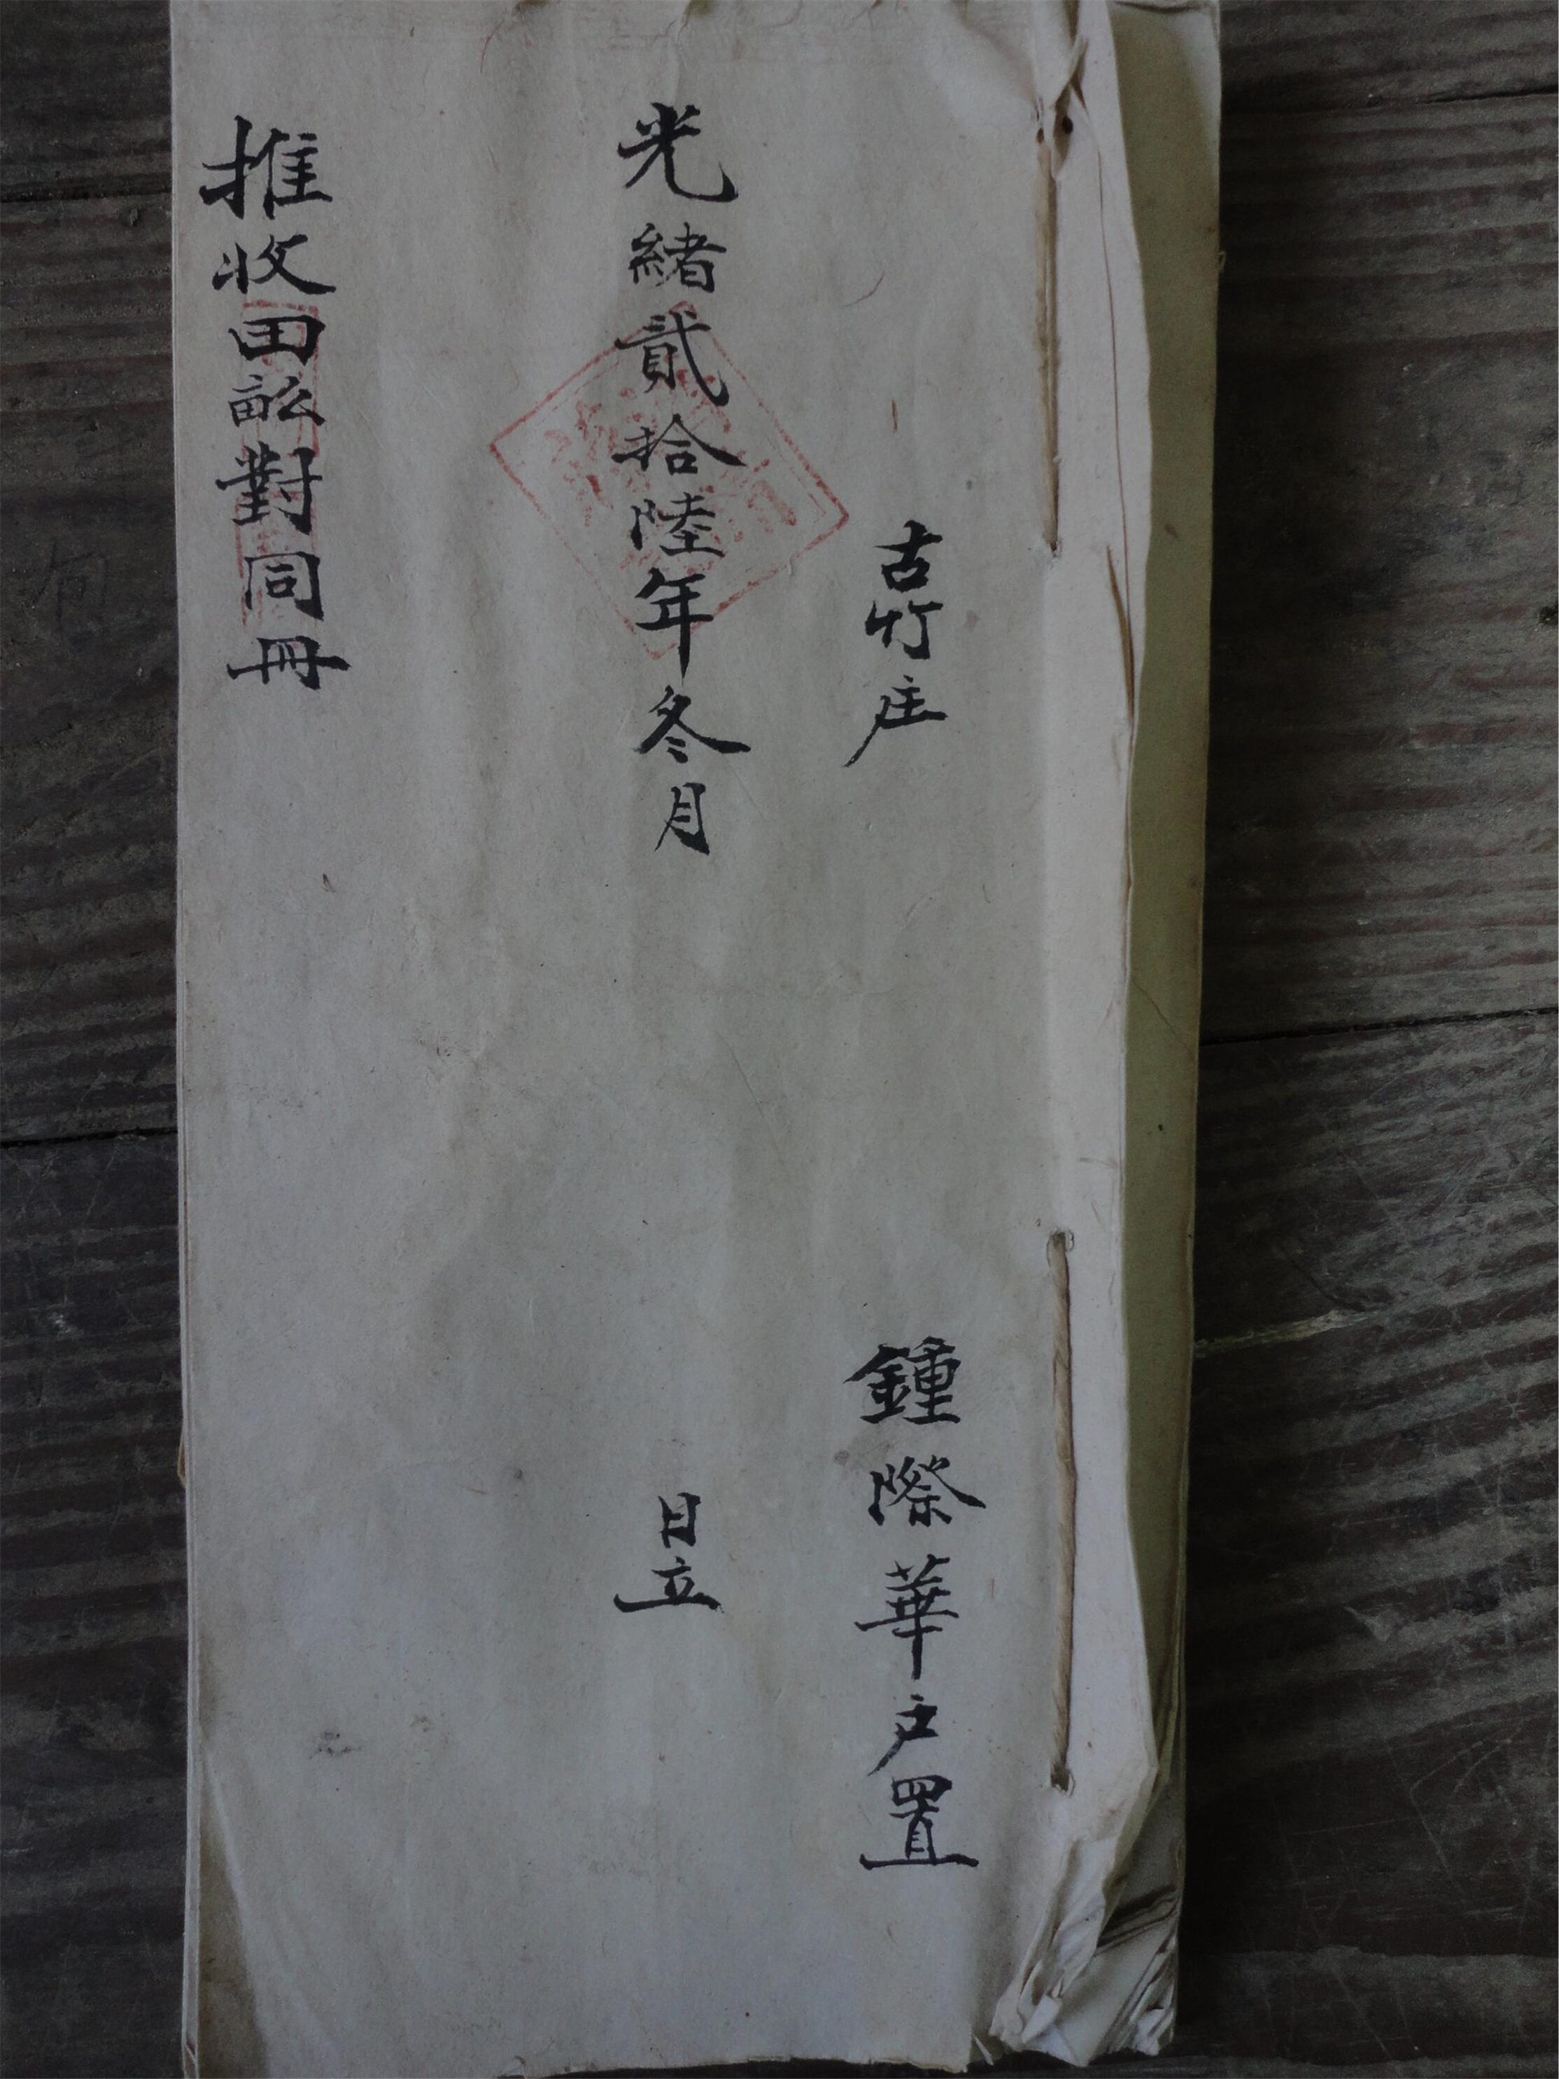 古竹庄 鍾際華戶置
光緒貳拾陸年冬月 日立
推收田畝對同冊